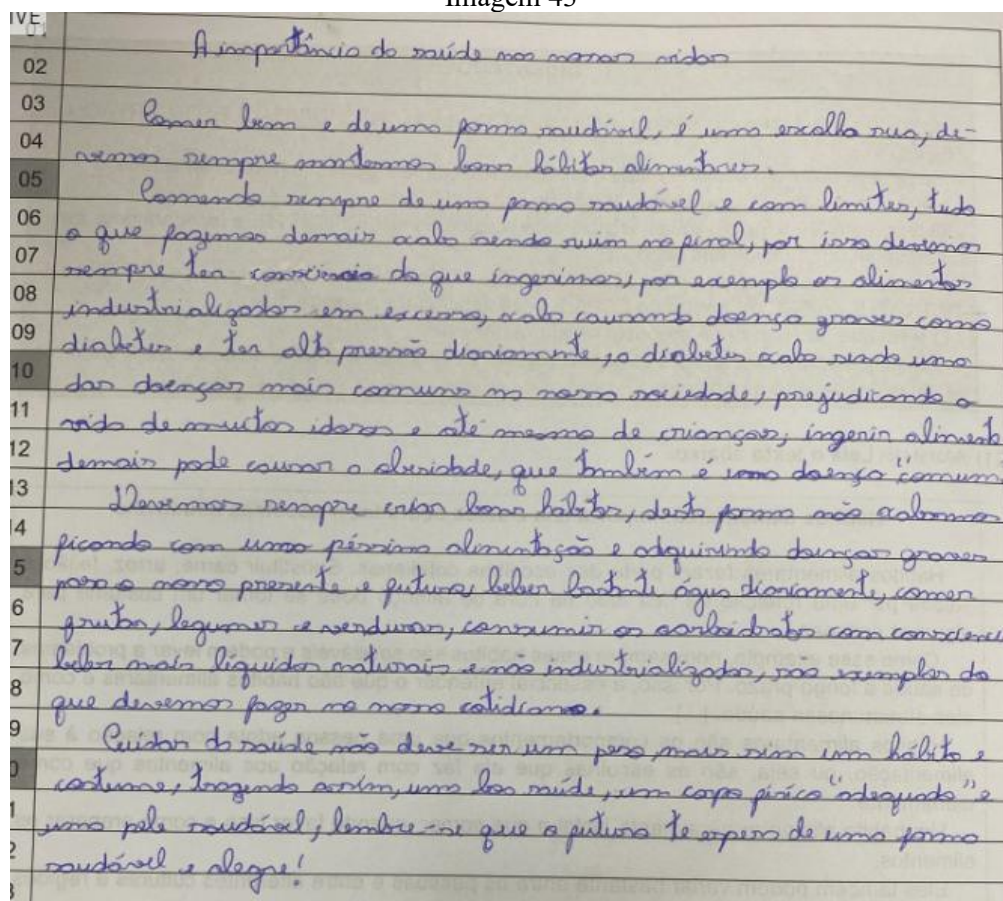 Imagem 45
IVE
01
A importância da saúde nas nossas vidas
02
03
Comer bem e de uma forma saudável, é uma escolha sua, de-
04
vemos sempre mantermos bons hábitos alimentares.
05
Comendo sempre de uma forma saudável e com limites, tudo
06
o que fazemos demais acaba sendo ruim no final, por isso devemos
07
sempre ter consciência do que ingerimos, por exemplo os alimentos
08
industrializados em excesso, acaba causando doença graves como
09
diabetes e ter alta pressão diariamente, a diabetes acaba sendo uma
10
das doenças mais comuns na nossa sociedade, prejudicando a
11
vida de muitos idosos e até mesmo de crianças, ingerir alimento
12
demais pode causar a obesidade, que também é uma doença "comum"
13
Devemos sempre criar bons habitos, desta forma não acabamos
4
ficando com uma péssima alimentação e adquirindo doenças graves
5
para o nosso presente e futuro, beber bastante água diariamente, comer
6
frutas, legumes e verduras, consumir os carboidratos com consciência
7
beber mais liquidos naturais e não industrializados, são exemplos do
8
que devemos fazer no nosso cotidiano.
9
Cuidar da saúde não deve ser um peso, mais sim um hábito e
0
costume, trazendo assim, uma boa saúde, um corpo físico "adequado" e
1
uma pele saudável, lembre-se que o futuro te espera de uma forma
2
saudável e alegre!
3